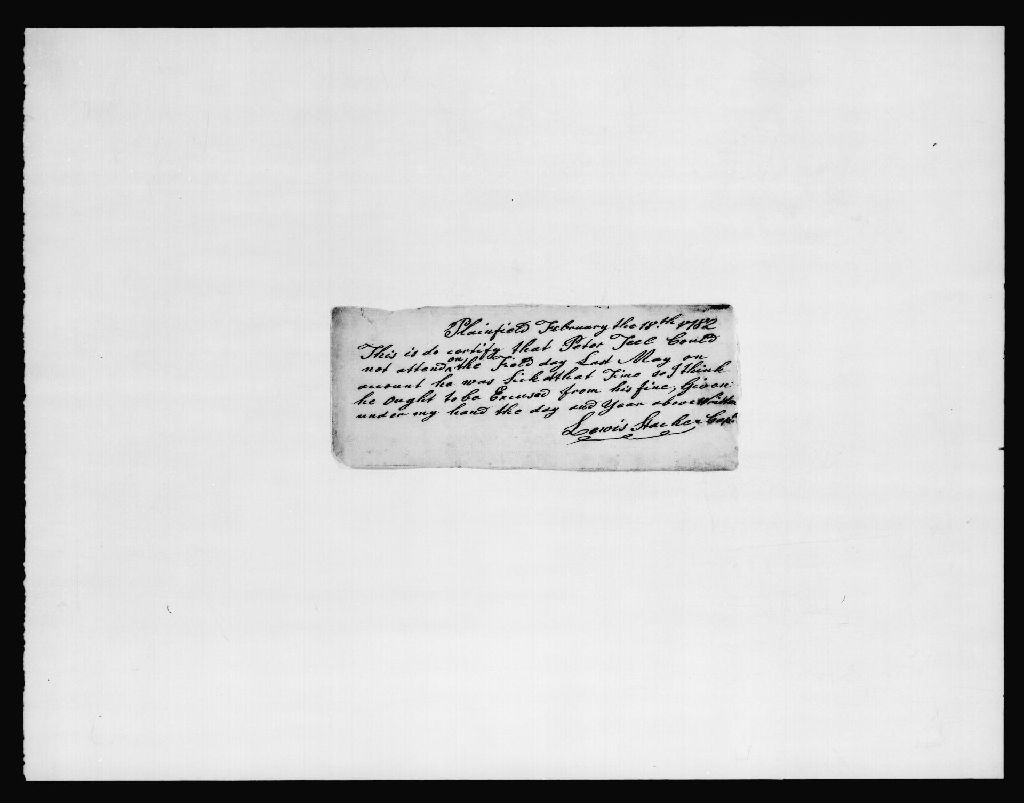 Plainfield February the 18th 1782
This is do certify that Peter Teel Could
not attend on the Field day Last May on
account he was Sick at that Time so I think
he ought to be Excused from his fine, Given
under my hand the day and Year above Written
Lewis Stecher Capt